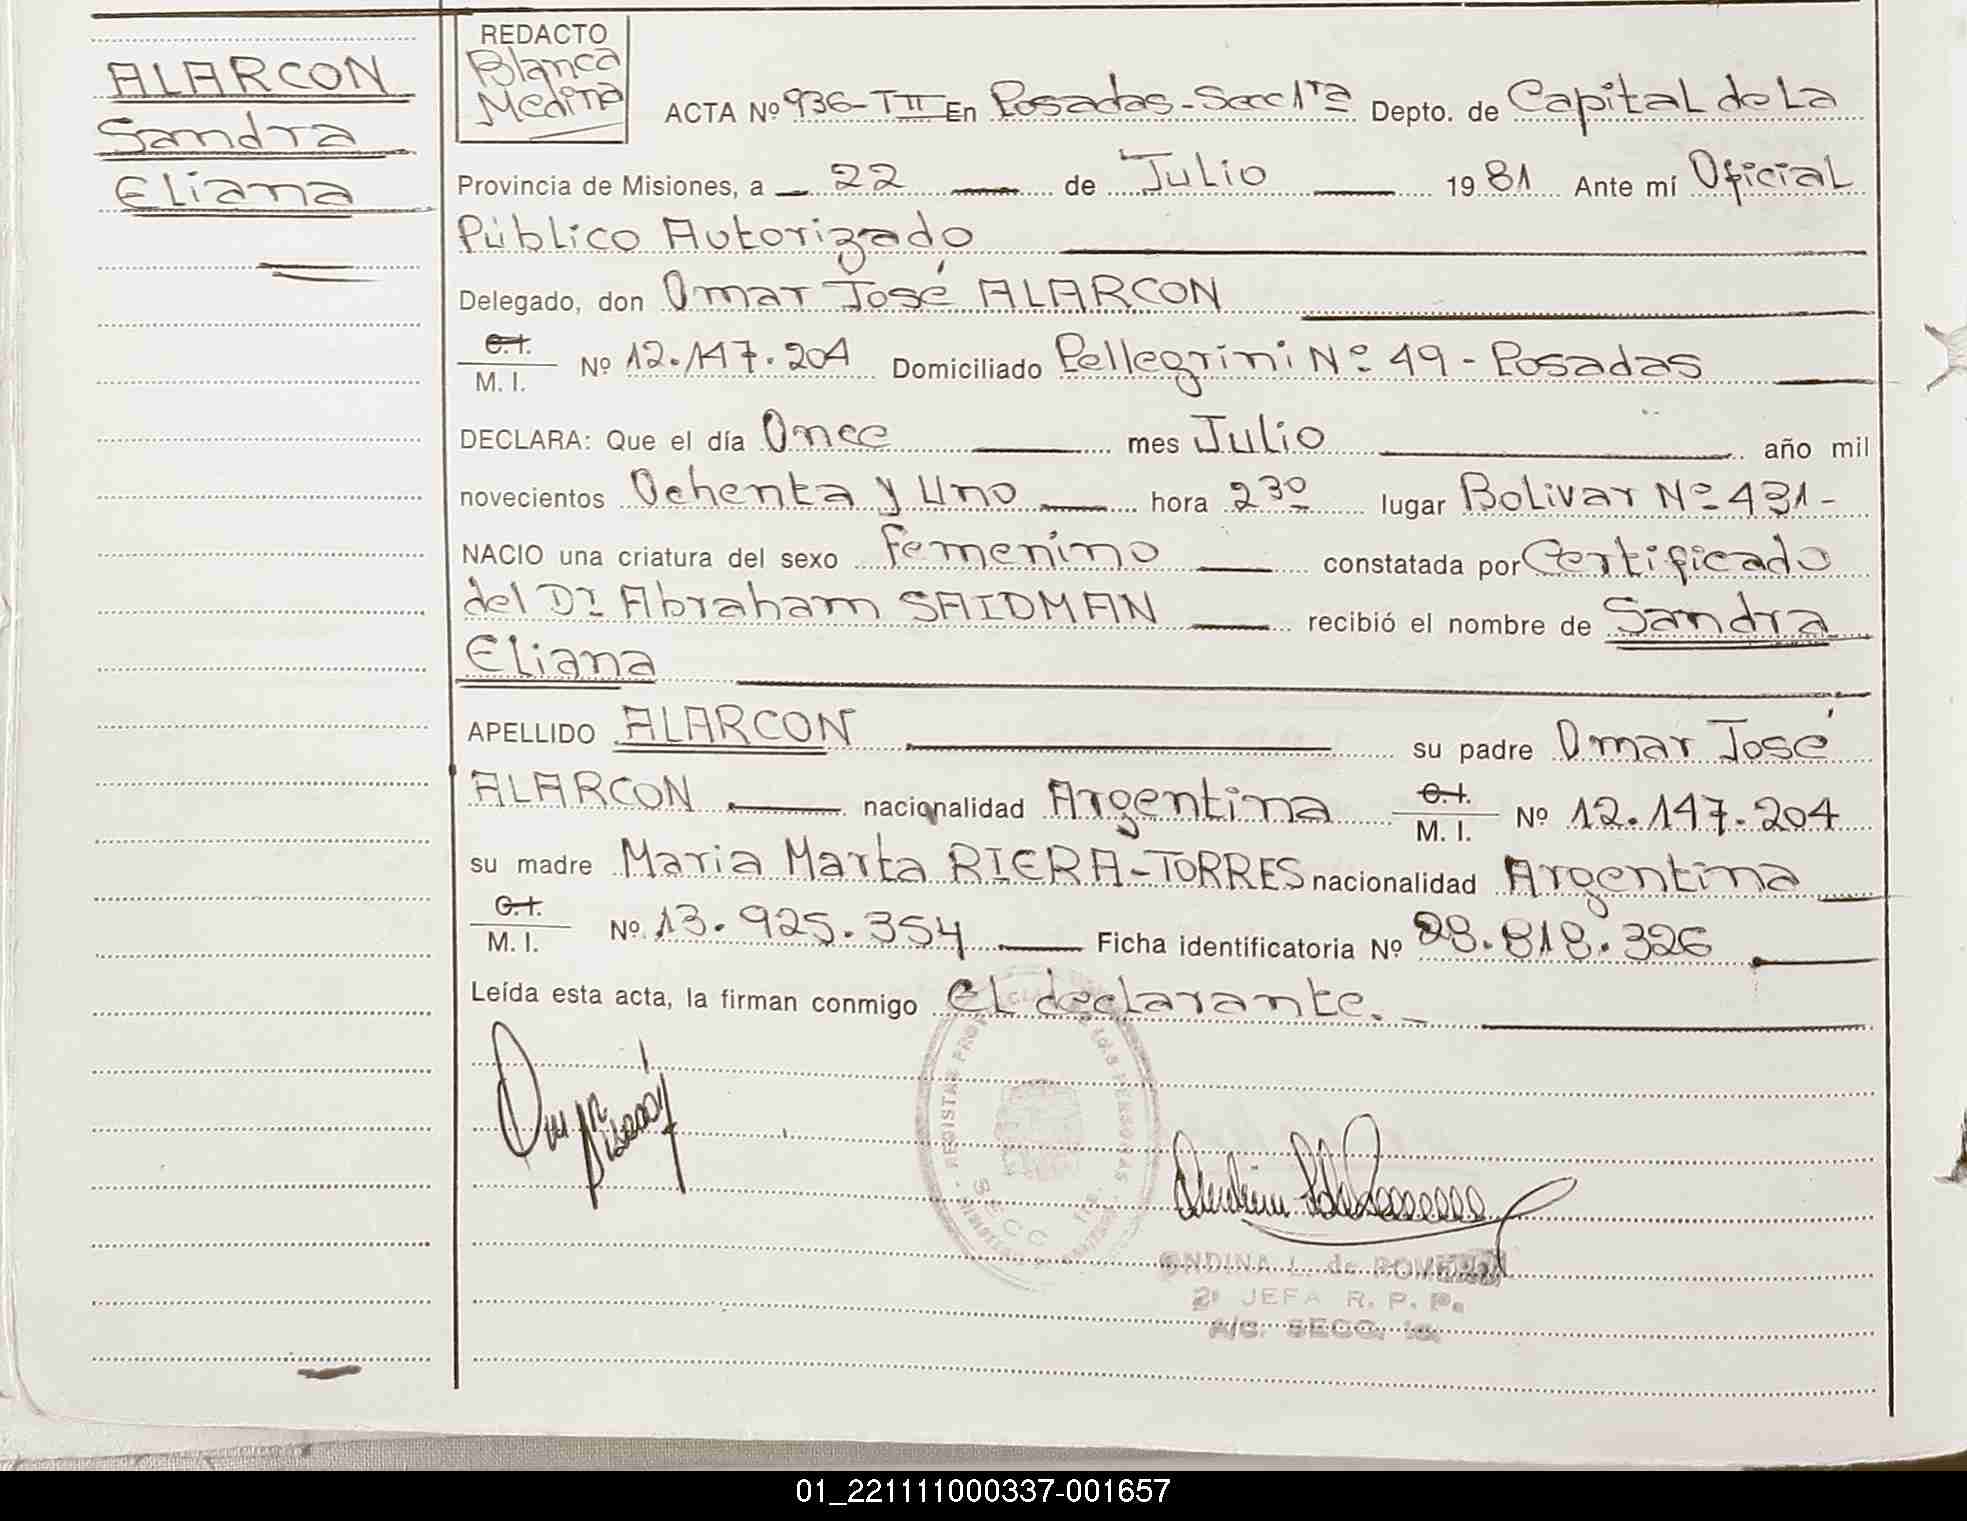 ALARCON
Sandra
Eliana
REDACTO
Blanca
Medina
ACTA Nº 936-TII En Posadas-Secc 1ra Depto. de Capital de La
Provincia de Misiones, a 22 de Julio 1981 Ante mí Oficial
Público Autorizado
Delegado, don Omar José ALARCON
C.I.
M. I. Nº 12.147.204 Domiciliado Pellegrini Nº 49 - Posadas
DECLARA: Que el día Once mes Julio año mil
novecientos Ochenta y Uno hora 2 30 lugar Bolivar Nº 431-
NACIO una criatura del sexo femenino constatada por Certificado
del Dr Abraham SAIDMAN recibió el nombre de Sandra
Eliana
APELLIDO ALARCON su padre Omar José
ALARCON nacionalidad Argentina C.I. M. I. Nº 12.147.204
su madre Maria Marta RIERA-TORRES nacionalidad Argentina
C.I.
M. I. Nº 13.925.354 Ficha identificatoria Nº 28.818.326
Leída esta acta, la firman conmigo el declarante.-
SECC 1ra.
ONDINA L. de
2º JEFA R. P. P.
A/C. SECC. 1a.
01_221111000337-001657